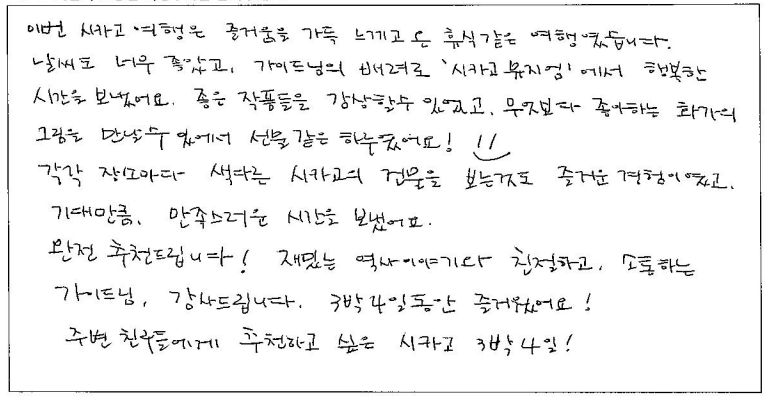 이번 시카고 여행은 즐거움을 가득 느끼고 온 휴식같은 여행였습니다.
날씨도 너무 좋았고, 가이드님의 배려로 '시카고 뮤지엄'에서 행복한
시간을 보냈어요. 좋은 작품들을 감상할수 있었고, 무엇보다 좋아하는 화가의
그림을 만날수 있에서 선물같은 하루였어요!
각각 장소마다 색다른 시카고의 건물을 보는것도 즐거운 경험이였고,
기대만큼, 만족스러운 시간을 보냈어요.
완전 추천드립니다! 재밌는 역사이야기와 친절하고, 소통하는
가이드님, 감사드립니다. 3박4일동안 즐거웠어요!
주변 친구들에게 추천하고 싶은 시카고 3박4일!